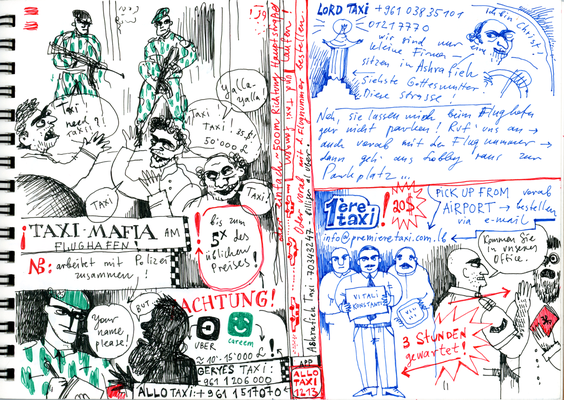 TAXI
need?
TAXI!
Yalla-
yalla!
TAXI
TAXI!
35.$!
50'000 £
TAXI
¡TAXI-MAFIA AM
FLUGHAFEN!
NB: arbeitet mit Polizei
zusammen!
! bis zum
5x des
üblichen
Preises!
ACHTUNG!
Your
name,
please!
BUT..
UBER
careem
~ 10'- 15'000 £ !
GERYES TAXI:
+961 1 206 000
ALLO TAXI: +961 1 517070
~ 500m Richtung Hauptstraße laufen!
Oder vorab mit d. Flugnummer bestellen.
Ashrafieh Taxi 70343247
APP
ALLO
TAXI
1213
LORD TAXI +961 03835101
01217770
ich bin Christ!
wir sind nur
kleine Firma -
sitzen in Ashrafieh
Siehste Gottesmutter?
Diese Strasse!
Neh, sie lassen mich beim Flughafen
gar nicht parken! Ruf' uns an →
auch vorab mit der Flugnummer →
dann geh' aus lobby raus zur
Parkplatz...
1ère
taxi!
20$
PICK UP FROM vorab
AIRPORT → bestellen
via e-mail
info@premieretaxi.com.lb
Kommen Sie
in unseres
Office.
VITALI
KONSTANTINOV
3 STUNDEN
gewartet!